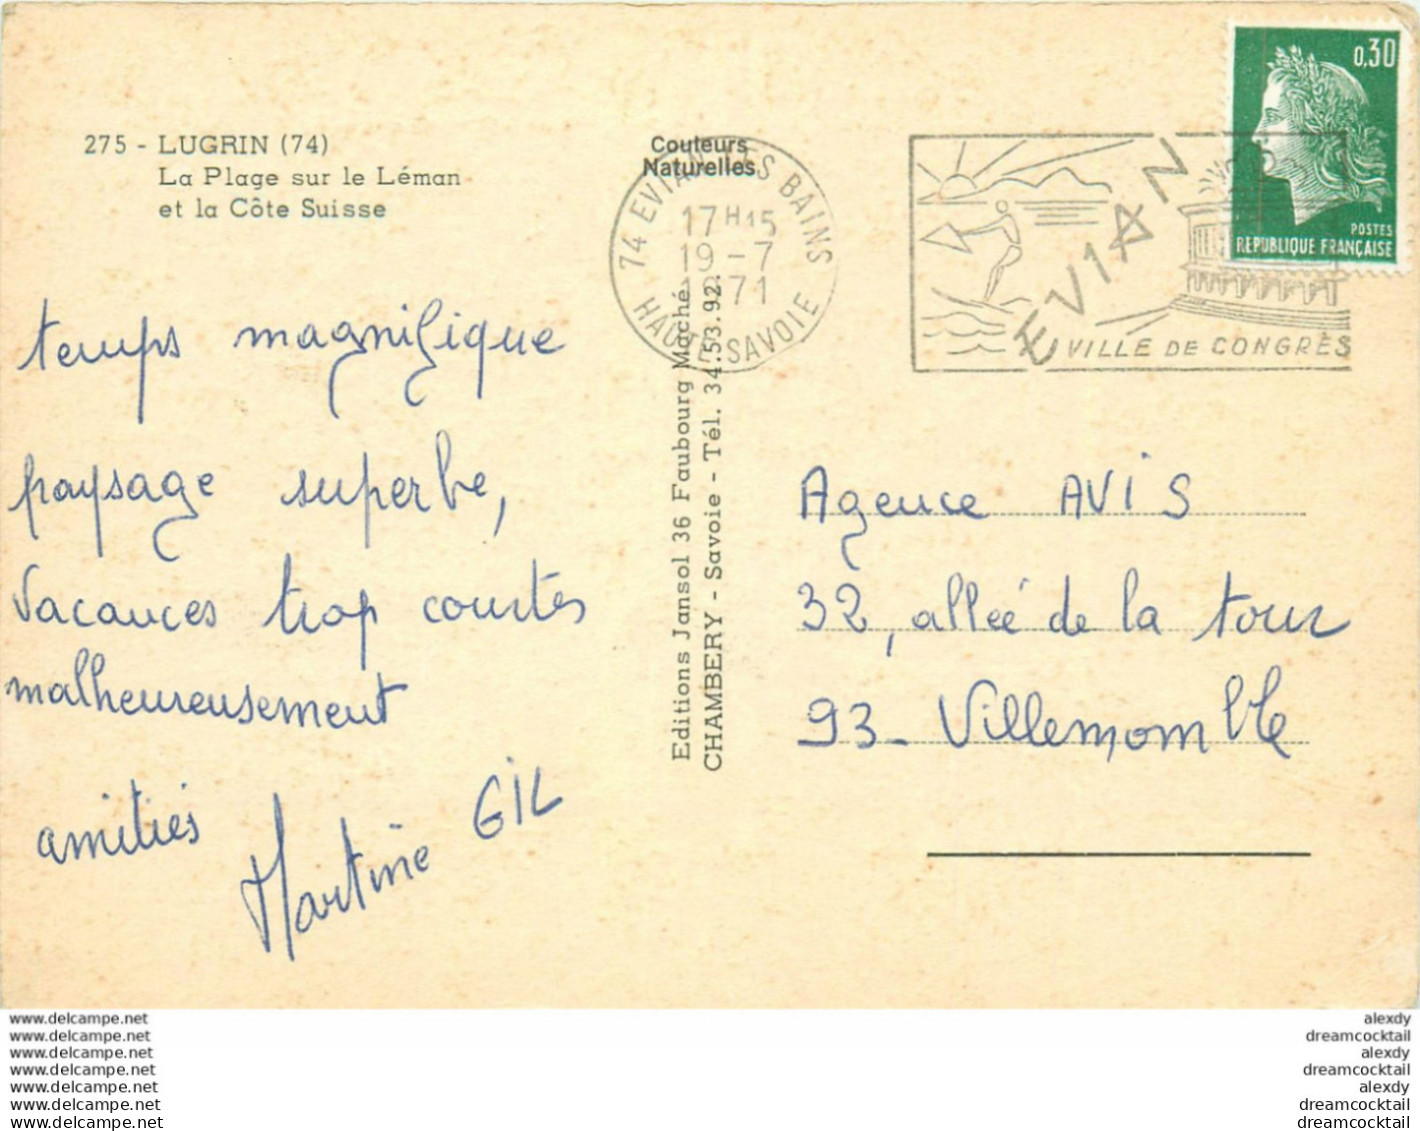 275 - LUGRIN (74)
La Plage sur le Léman
et la Côte Suisse
Couleurs
Naturelles
74 EVIAN LES BAINS
17H15
19-7
1971
HAUTE-SAVOIE
EVIAN
VILLE DE CONGRÈS
0,30
POSTES
RÉPUBLIQUE FRANÇAISE
temps magnifique
paysage superbe,
vacances trop courtes
malheureusement
amitiés
Martine GIL
Editions Jansol 36 Faubourg Maché
CHAMBERY - Savoie - Tél. 34.53.92.
Agence AVIS
32, allée de la tour
93 - Villemomble
www.delcampe.net
www.delcampe.net
www.delcampe.net
www.delcampe.net
www.delcampe.net
www.delcampe.net
www.delcampe.net
alexdy
dreamcocktail
alexdy
dreamcocktail
alexdy
dreamcocktail
dreamcocktail